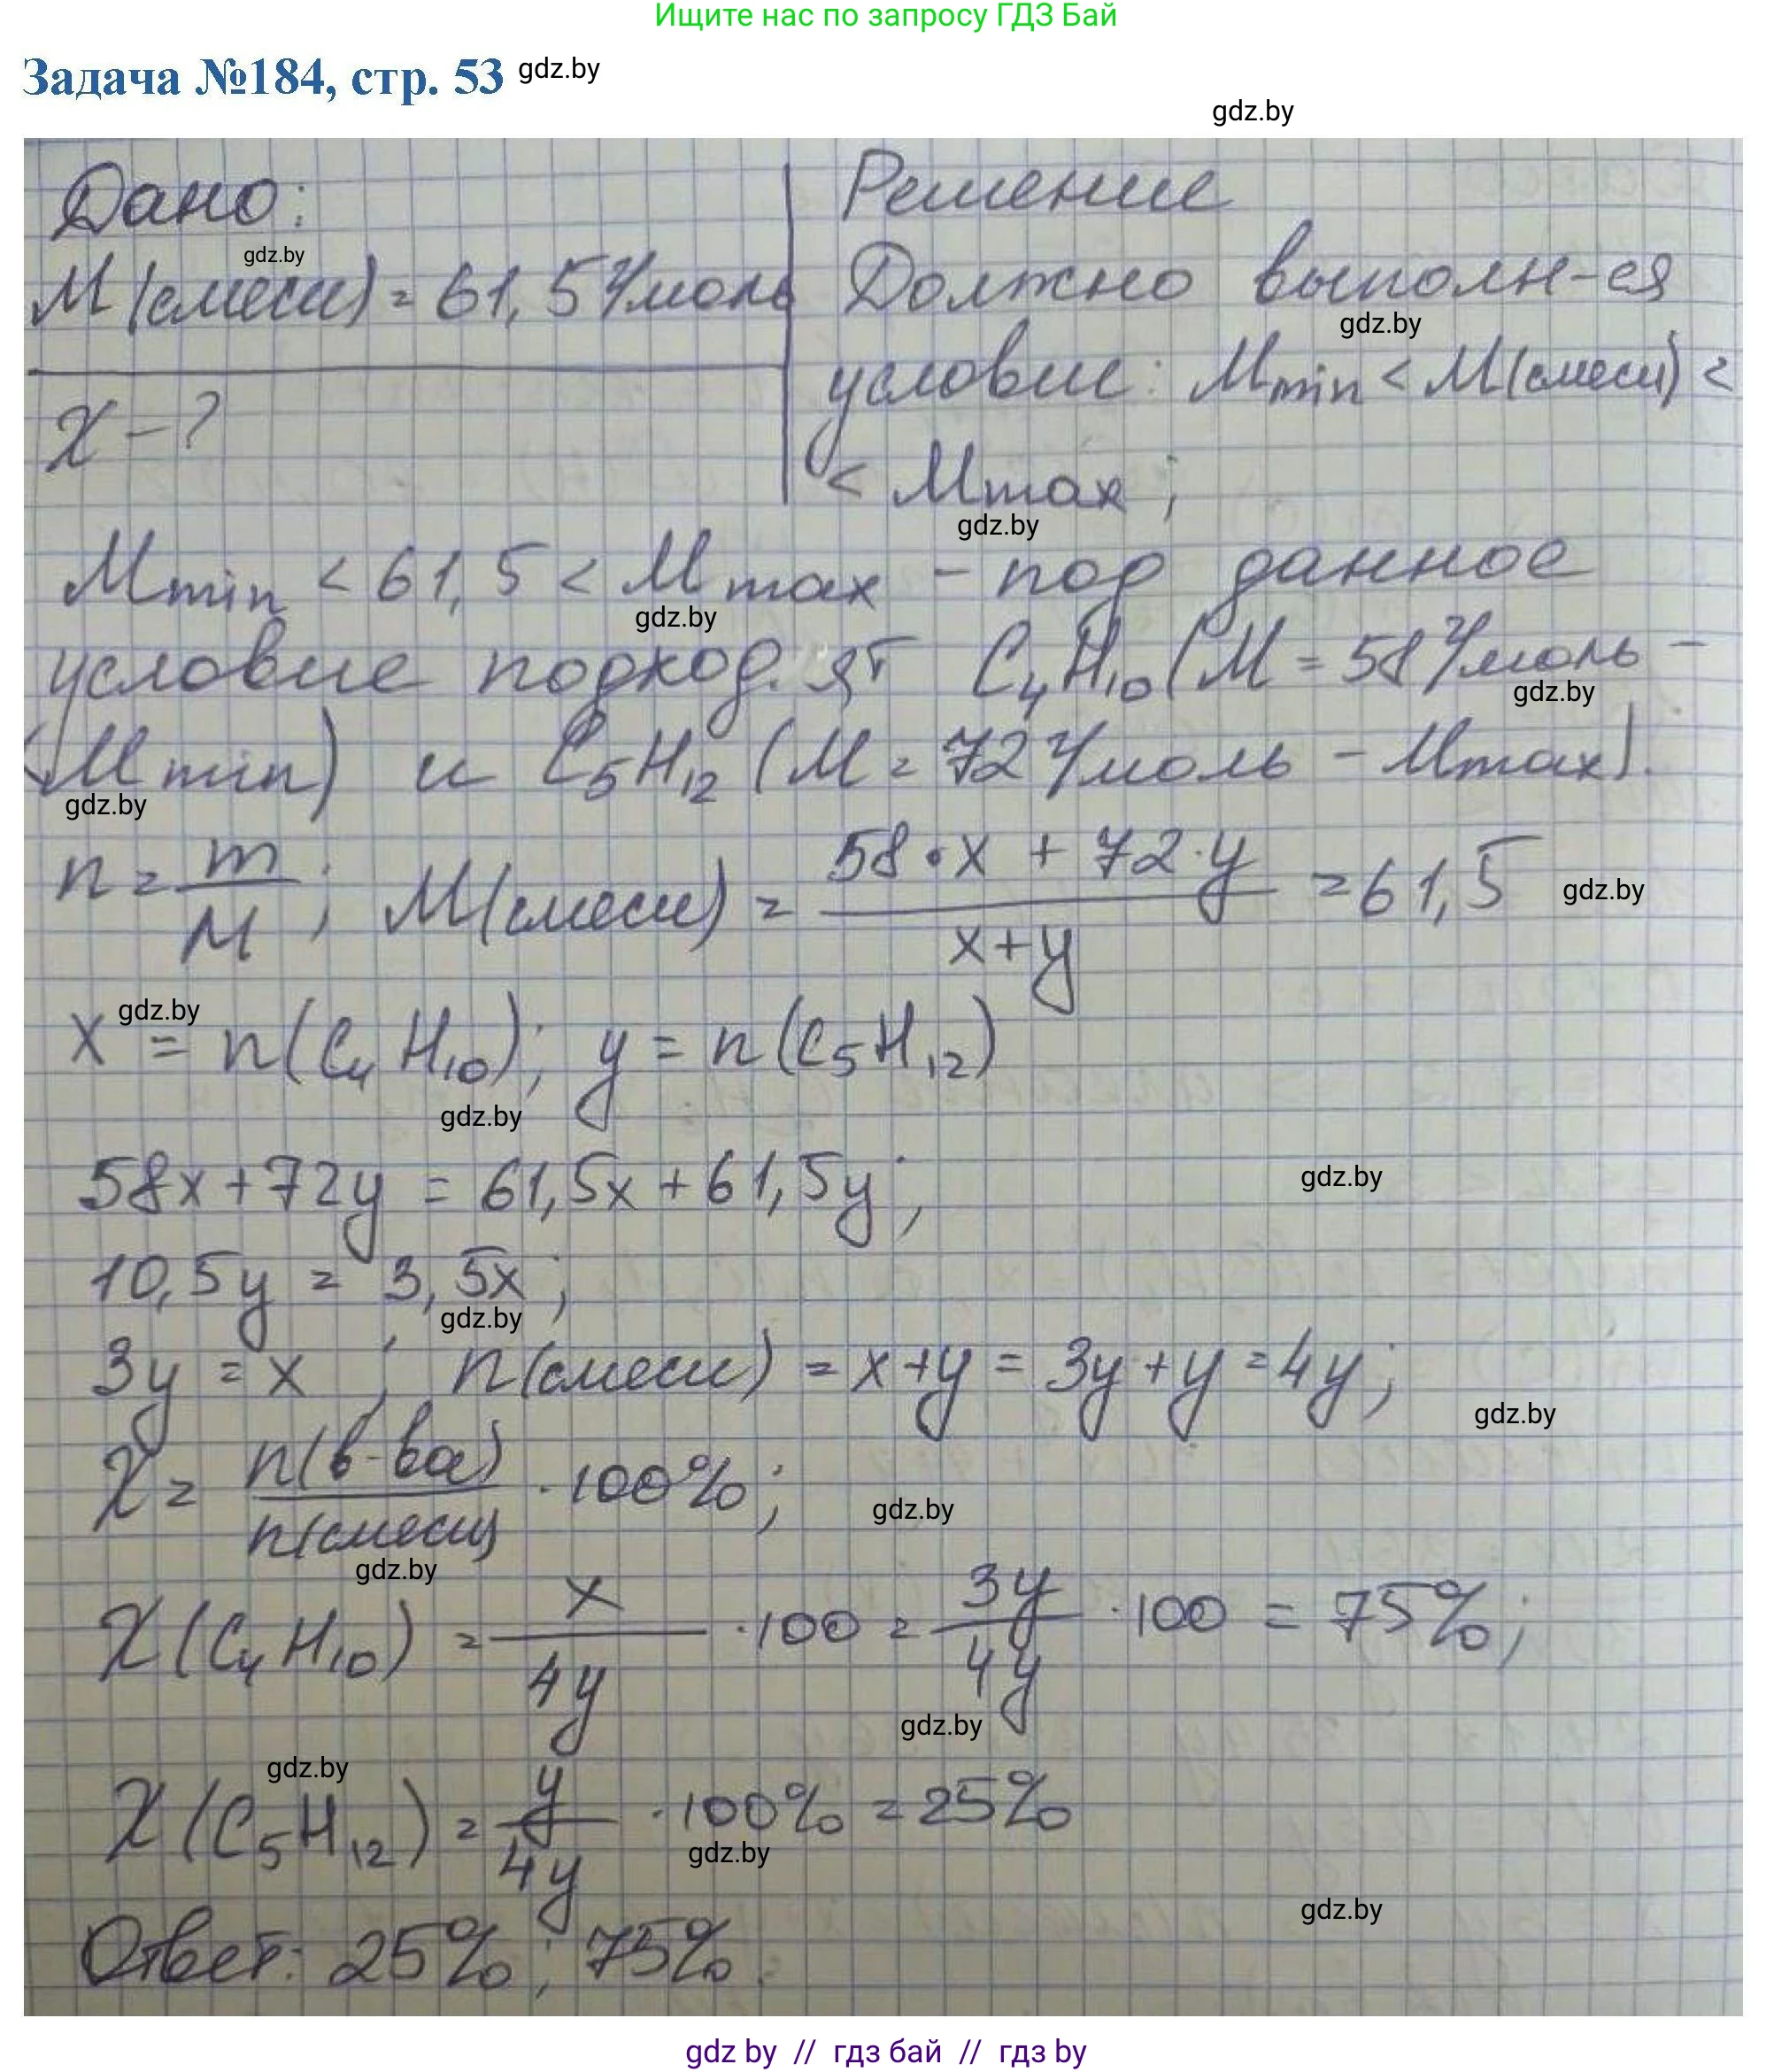 Ищите нас по запросу ГДЗ Бай
Задача №184, стр. 53 gdz.by
gdz.by
Дано:
gdz.by
M(смеси) = 61,5 г/моль
X - ?
Решение
Должно выполн-ся
gdz.by
условие: Mmin < M(смеси) <
< Mmax;
gdz.by
Mmin < 61,5 < Mmax - под данное
gdz.by
условие подход. ят C₄H₁₀ (M = 58 г/моль -
gdz.by
(Mmin) и C₅H₁₂ (M = 72 г/моль - Mmax).
gdz.by
n = m/M; M(смеси) = (58·x + 72·y)/(x+y) = 61,5 gdz.by
gdz.by
x = n(C₄H₁₀); y = n(C₅H₁₂)
gdz.by
58x + 72y = 61,5x + 61,5y; gdz.by
10,5y = 3,5x;
gdz.by
3y = x; n(смеси) = x+y = 3y+y = 4y;
gdz.by
X = n(в-ва)/n(смеси) · 100%; gdz.by
gdz.by
X(C₄H₁₀) = x/4y · 100 = 3y/4y · 100 = 75%;
gdz.by
gdz.by
X(C₅H₁₂) = y/4y · 100% = 25%
gdz.by
gdz.by
Ответ: 25%; 75%.
gdz by // гдз бай // гдз by